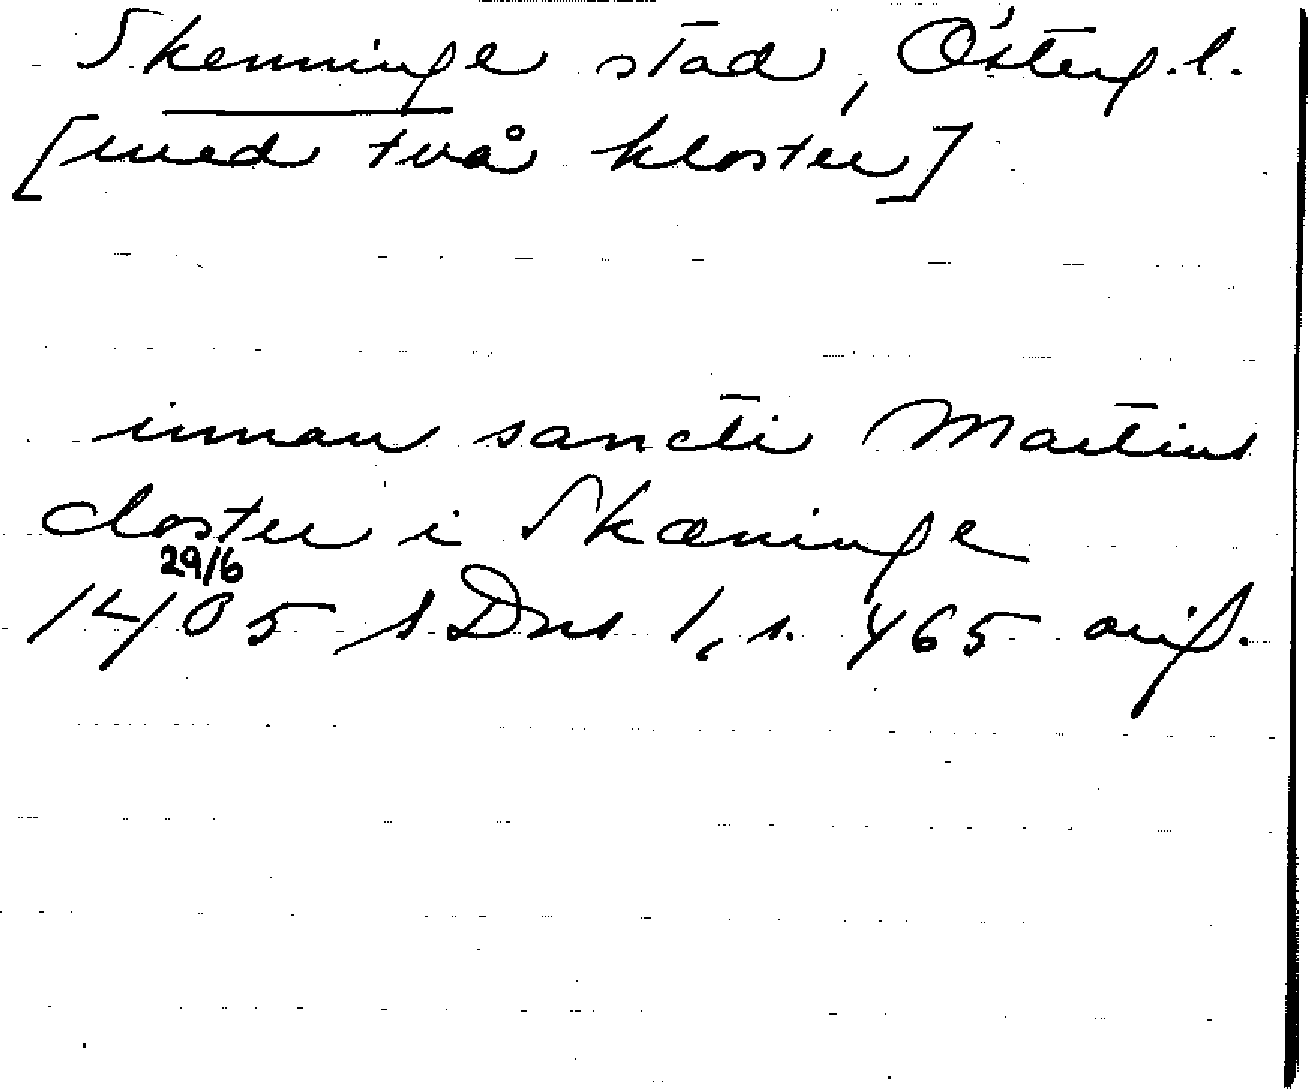 Skenninge stad, Österg.l.
[med två kloster]
innan sancti Martins
closter i Skæninge
29/6
1405 SDns 1, s. 465 orig.